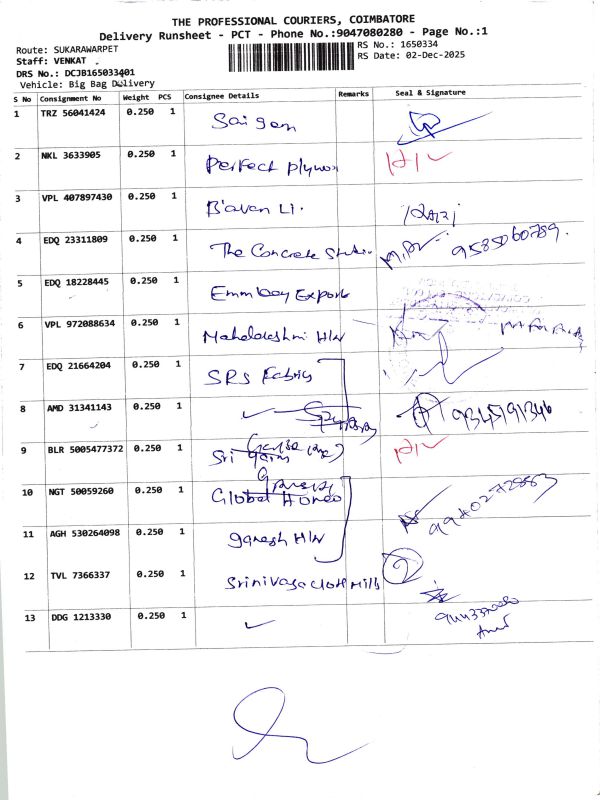 THE PROFESSIONAL COURIERS, COIMBATORE
Delivery Runsheet - PCT - Phone No.:9047080280 - Page No.:1
Route: SUKARAWARPET
RS No.: 1650334
Staff: VENKAT
RS Date: 02-Dec-2025
DRS No.: DCJB165033401
Vehicle: Big Bag Delivery
S No Consignment No Weight PCS Consignee Details Remarks Seal & Signature
1 TRZ 56041424 0.250 1 Saigon
2 NKL 3633905 0.250 1 Perfect Plywood H/W
3 VPL 407897430 0.250 1
4 EDQ 23311809 0.250 1 The Concrete 9585060789.
5 EDQ 18228445 0.250 1 Emmbay Exports
6 VPL 972088634 0.250 1 Mahalakshmi H/W
7 EDQ 21664204 0.250 1 SRS Fabrics
8 AMD 31341143 0.250 1 ✓ 9345191346
9 BLR 5005477372 0.250 1 Sri H/W
10 NGT 50059260 0.250 1 Global
11 AGH 530264098 0.250 1 ganesh H/W
12 TVL 7366337 0.250 1 Srinivasa cloth Mills
13 DDG 1213330 0.250 1 ✓